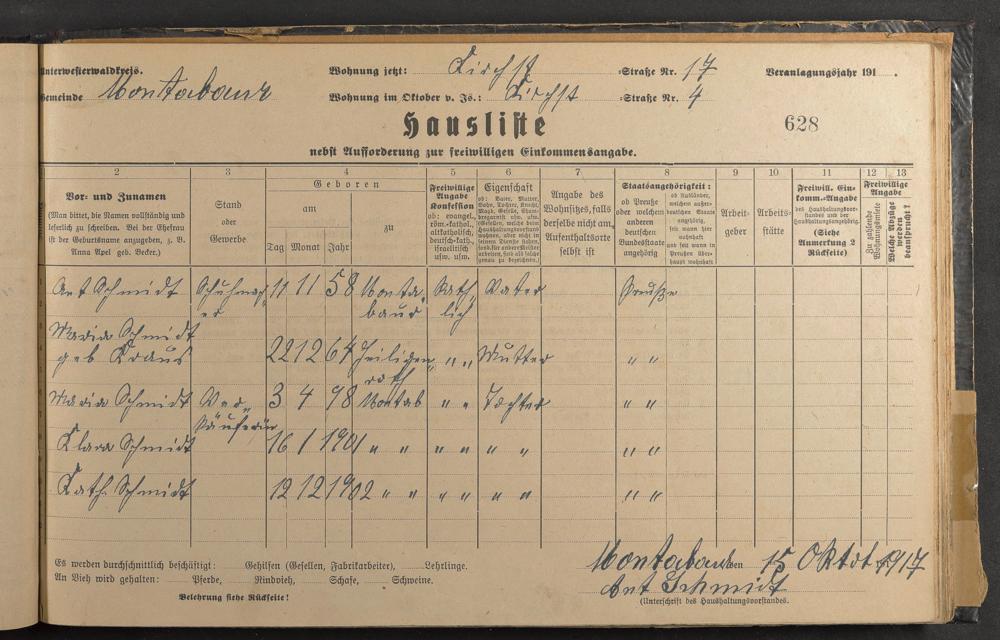 Unterwesterwaldkreis. Wohnung jetzt: Kirchst =Straße Nr. 17 Veranlagungsjahr 191 .
Gemeinde Montabaur Wohnung im Oktober v. Js.: Kirchst =Straße Nr. 4
Hausliste 628
nebst Aufforderung zur freiwilligen Einkommensangabe.
2 3 4 5 6 7 8 9 10 11 12 13
Vor- und Zunamen
(Man bittet, die Namen vollständig und
leserlich zu schreiben. Bei der Ehefrau
ist der Geburtsname anzugeben, z. B.
Anna Apel geb. Becker.)
Stand
oder
Gewerbe
Geboren
am
zu
Tag Monat Jahr
Freiwillige
Angabe
Konfession
ob: evangel.,
röm.-kathol.,
altkatholisch,
deutsch-kath.,
israelitisch
usw. usw.
Eigenschaft
Angabe des
Wohnsitzes, falls
derselbe nicht am
Aufenthaltsorte
selbst ist
Staatsangehörigkeit:
ob Preuße
oder welchem
anderen
deutschen
Bundesstaate
angehörig
ob Ausländer,
welchem außer-
deutschen Staate
angehörig,
seit wann hier
wohnhaft
und seit wann in
Preußen über-
haupt wohnhaft
Arbeit-
geber
Arbeits-
stätte
Freiwill. Ein-
komm.-Angabe
des Haushaltungsvor-
standes und der
Haushaltungsangehörig.
(Siehe
Anmerkung 2
Rückseite)
Freiwillige
Angabe
Zu zahlende
Wohnungsmiete
Welche Abzüge
werden
beansprucht?
Ant Schmidt Schuhmach 11 11 58 Monta- Kath- Vater Preuße
er baur lich
Maria Schmidt
geb Kraus 22 12 64 Heiligen- " " Mutter " "
roth
Maria Schmidt Ver- 3 4 98 Montab " " Tochter " "
käuferin
Klara Schmidt 16 1 1901 " " " " " " " "
Kath. Schmidt 12 12 1902 " " " " " " " "
Es werden durchschnittlich beschäftigt: Gehilfen (Gesellen, Fabrikarbeiter), Lehrlinge.
An Vieh wird gehalten: Pferde, Rindvieh, Schafe, Schweine.
Belehrung siehe Rückseite!
Montabaur den 15 Oktbr 1917
Ant Schmidt
(Unterschrift des Haushaltungsvorstandes.